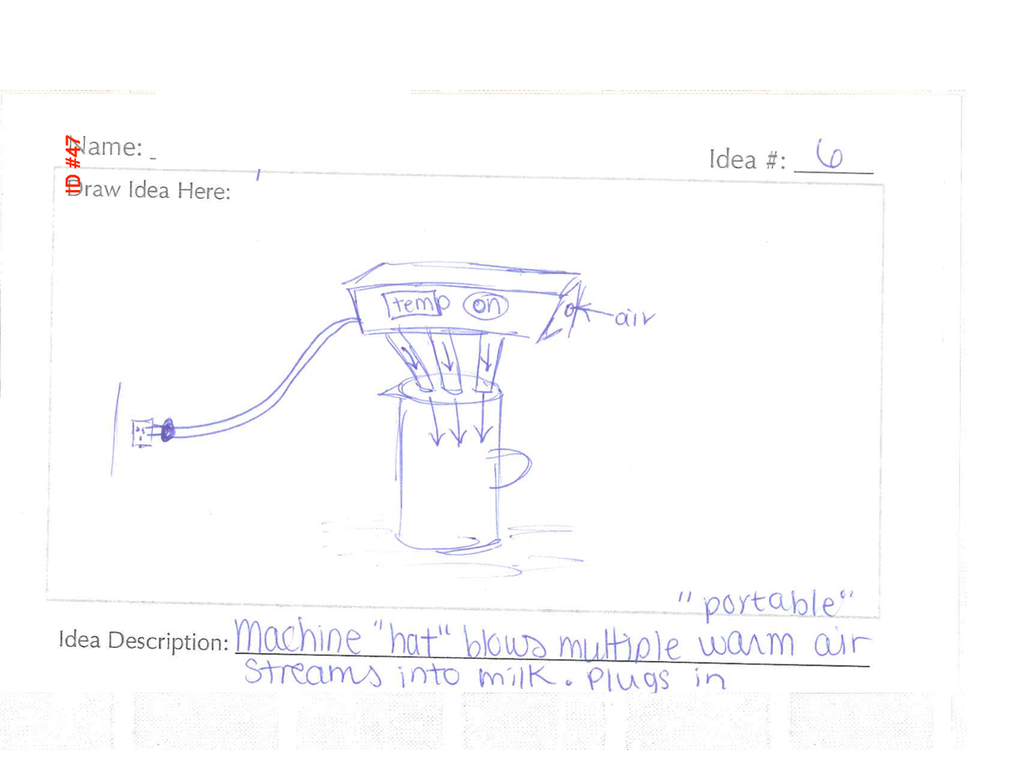 ID #47
Name:
Idea #: 6
Draw Idea Here:
temp on
air
"portable"
Idea Description: Machine "hat" blows multiple warm air
streams into milk. Plugs in